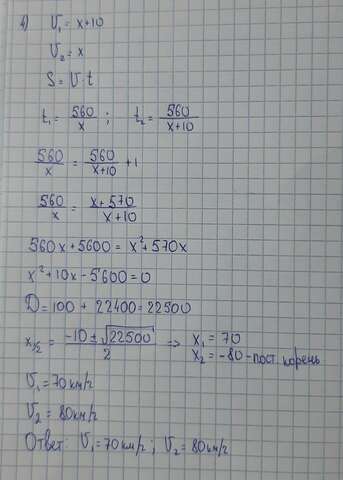 4) V₁ = x+10
V₂ = x
S = V·t
t₁ = 560/x ; t₂ = 560/(x+10)
560/x = 560/(x+10) + 1
560/x = (x+570)/(x+10)
560x + 5600 = x² + 570x
x² + 10x - 5600 = 0
D = 100 + 22400 = 22500
x₁/₂ = (-10 ± √22500)/2 => x₁ = 70
x₂ = -80 - пост. корень
V₁ = 70 км/г
V₂ = 80 км/г
Ответ: V₁ = 70 км/г ; V₂ = 80 км/г